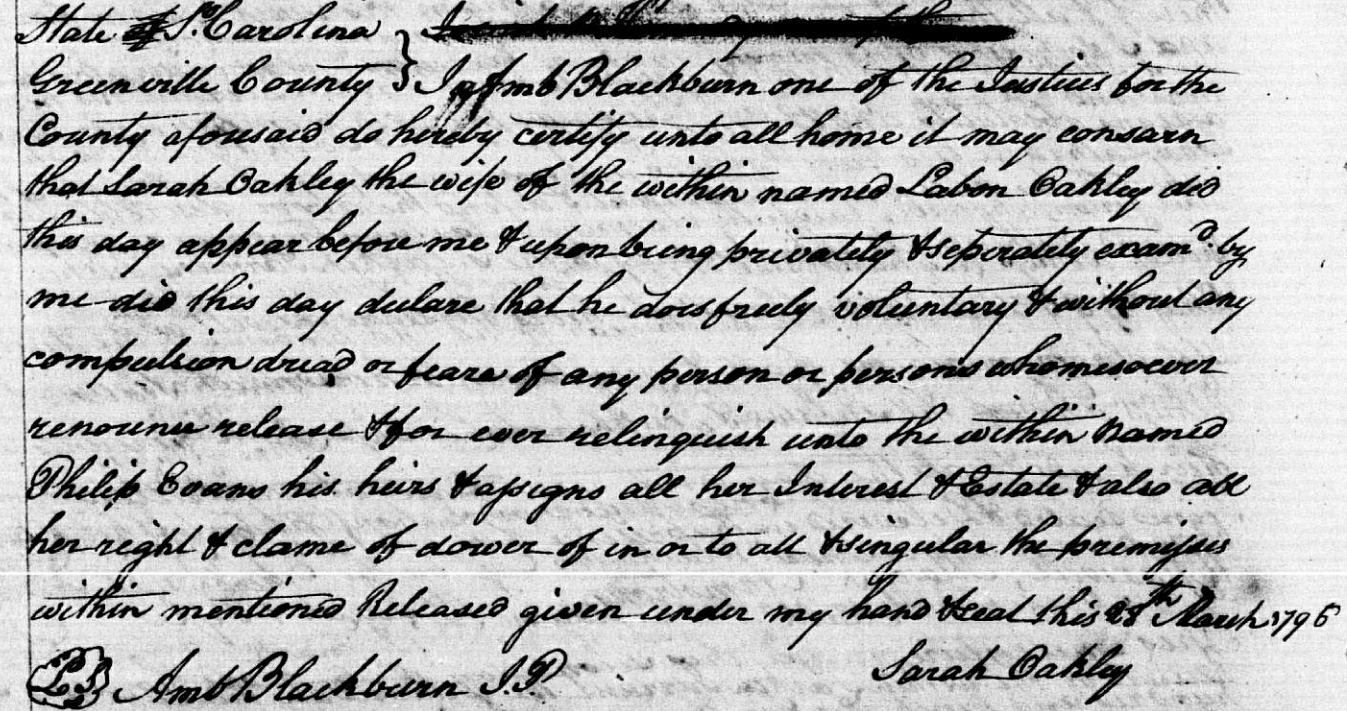 State of So. Carolina }
Greenville County } I Amb Blackburn one of the Justices for the
County aforesaid do hereby certify unto all home it may consarn
that Sarah Oakley the wife of the within named Labon Oakley did
this day appear before me & upon being privately & seperately examd. by
me did this day declare that he does freely voluntary & without any
compulsion dread or feare of any person or persons whomesoever
renounce release & for ever relinquish unto the within named
Philip Evans his heirs & assigns all her Interest & Estate & also all
her right & clame of dower of in or to all & singular the premisses
within mentioned Released given under my hand & seal this 28th March 1796
L.S. Amb Blackburn J.P. Sarah Oakley